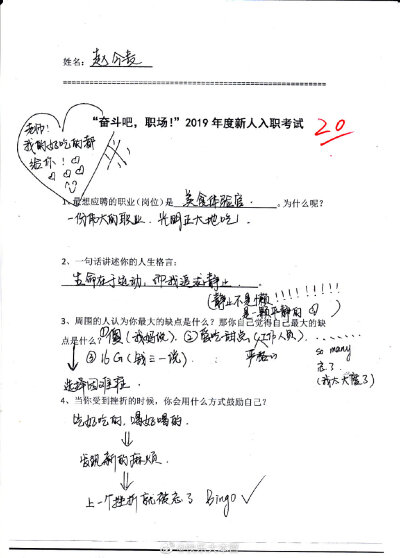 姓名：赵今麦
“奋斗吧，职场！”2019 年度新人入职考试
20
老师！
我的好吃的都
给你！
1、最想应聘的职业（岗位）是 美食体验官 。为什么呢？
一份伟大的职业，光明正大地吃！
2、一句话讲述你的人生格言：
生命在于运动，而我适合静止
（静止不是懒！！！！！！！
是一颗平静的
3、周围的人认为你最大的缺点是什么？那你自己觉得自己最大的缺
点是什么？①懒（我妈说）．②爱吃甜点（工作人员）．．．．．．．
③16G（钱三一说）
so many
忘了
（我太大意了）
选择困难症
4、当你受挫折的时候，你会用什么方式鼓励自己？
吃好吃的，喝好喝的．
发现新的麻烦．
上一个挫折就被忘了 Bingo ✓